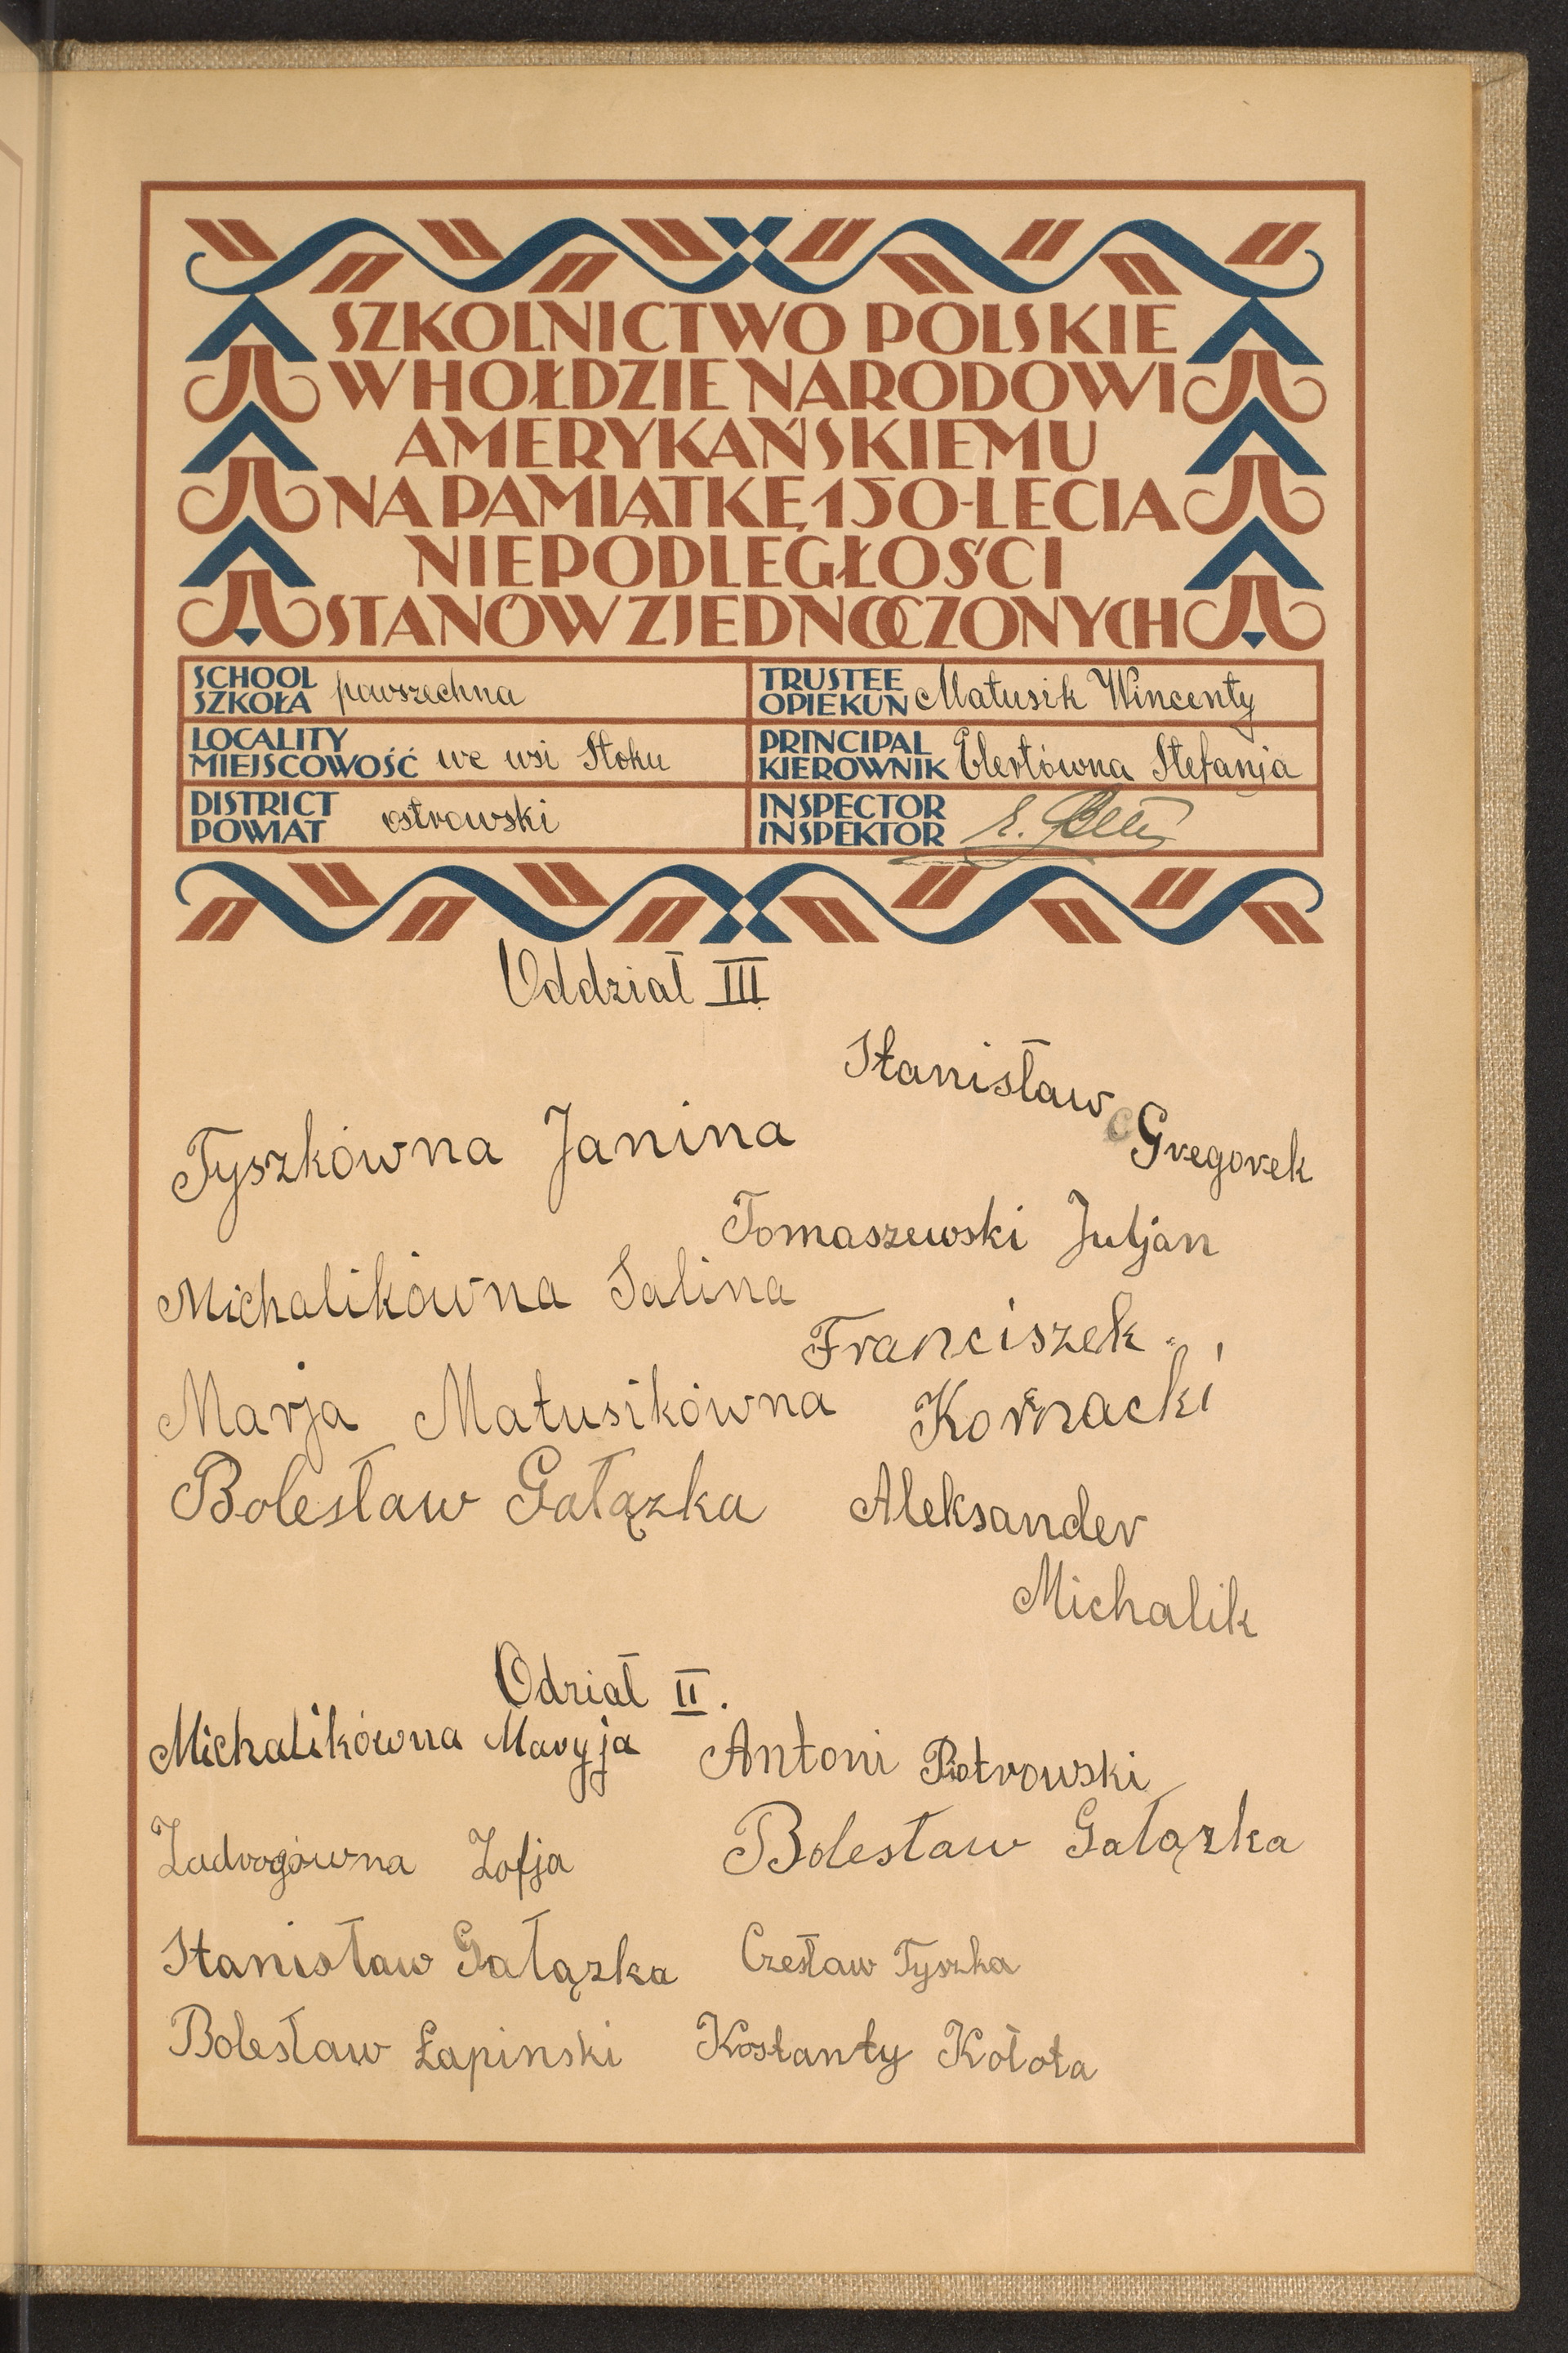 SZKOLNICTWO POLSKIE
W HOŁDZIE NARODOWI
AMERYKAŃSKIEMU
NA PAMIĄTKĘ 150-LECIA
NIEPODLEGŁOŚCI
STANÓW ZJEDNOCZONYCH
SCHOOL
SZKOŁA powszechna
TRUSTEE
OPIEKUN Matusik Wincenty
LOCALITY
MIEJSCOWOŚĆ we wsi Stoku
PRINCIPAL
KIEROWNIK Elertówna Stefanja
DISTRICT
POWIAT ostrowski
INSPECTOR
INSPEKTOR
Oddział III
Stanisław Gregorek
Tyszkówna Janina
Tomaszewski Juljan
Michalikówna Salina
Franciszek
Kornacki
Marja Matusikówna
Bolesław Gałązka
Aleksander
Michalik
Odział II.
Michalikówna Maryja
Antoni Piotrowski
Zadrogówna Zofja
Bolesław Gałązka
Stanisław Gałązka
Czesław Tyszka
Bolesław Łapinski
Kostanty Kołota